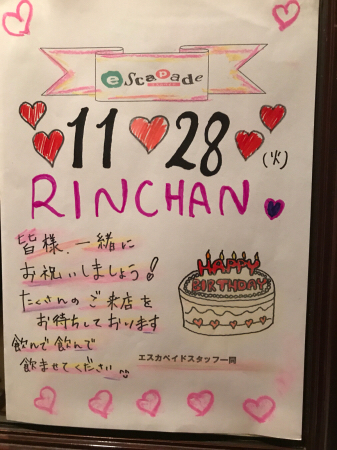 escapade
11 ♥ 28 (火)
RINCHAN
皆様、一緒に
お祝いしましょう!
たくさんのご来店を
お待ちしております
飲んで飲んで
飲ませてください
HAPPY
BIRTHDAY
エスカペイドスタッフ一同